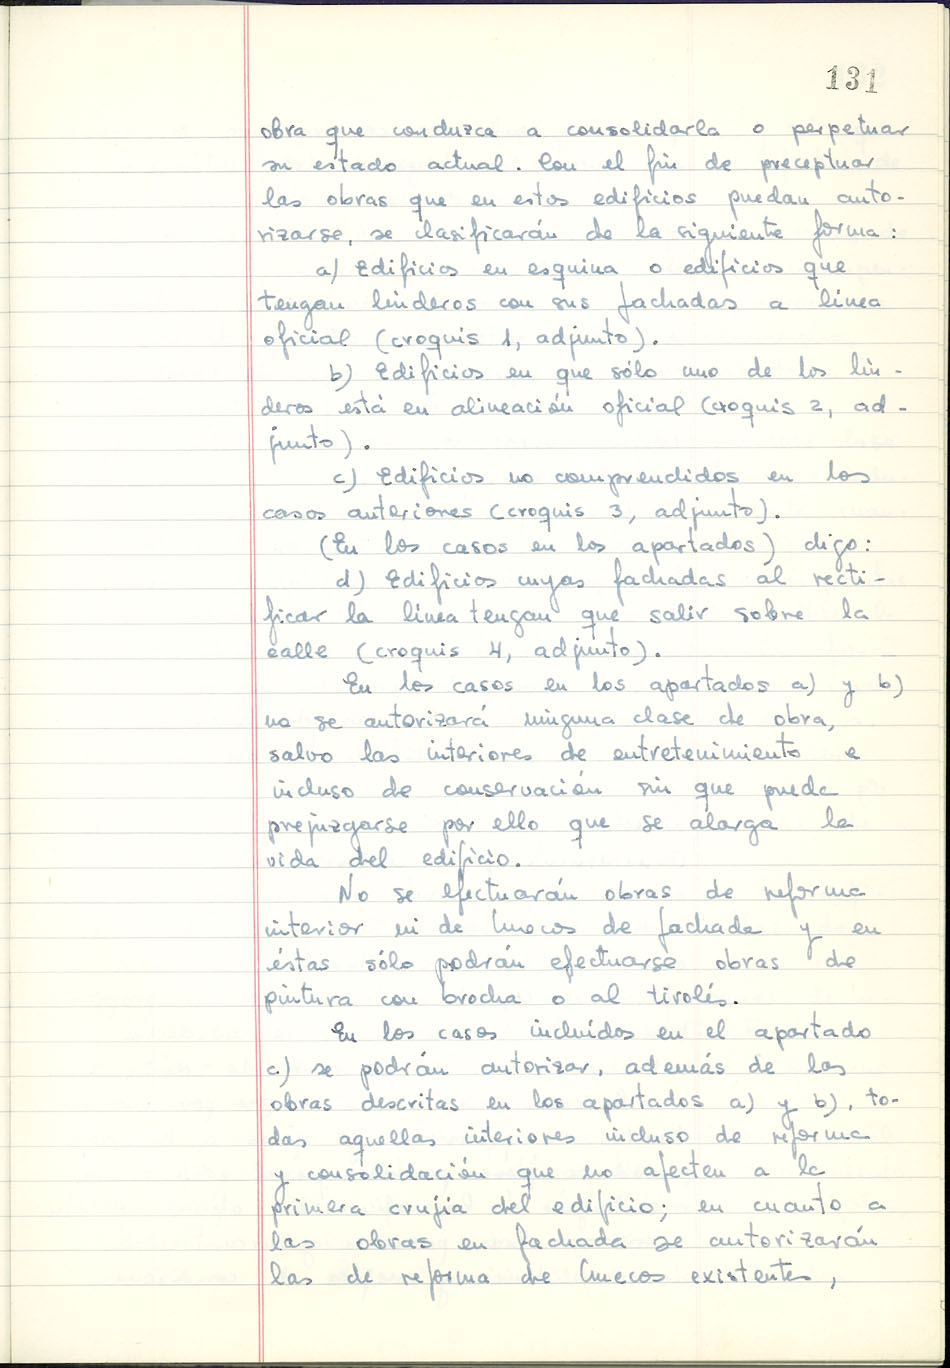 131
obra que conduzca a consolidarla o perpetuar
su estado actual. Con el fin de preceptuar
las obras que en estos edificios puedan auto-
rizarse, se clasificarán de la siguiente forma:
a) Edificios en esquina o edificios que
tengan linderos con sus fachadas a línea
oficial (croquis 1, adjunto).
b) Edificios en que sólo uno de los lin-
deros está en alineación oficial (croquis 2, ad-
junto).
c) Edificios no comprendidos en los
casos anteriores (croquis 3, adjunto).
(En los casos en los apartados) digo:
d) Edificios cuyas fachadas al recti-
ficar la línea tengan que salir sobre la
calle (croquis 4, adjunto).
En los casos en los apartados a) y b)
no se autorizará ninguna clase de obra,
salvo las interiores de entretenimiento e
incluso de conservación sin que pueda
prejuzgarse por ello que se alarga la
vida del edificio.
No se efectuarán obras de reforma
interior ni de huecos de fachada y en
éstas sólo podrán efectuarse obras de
pintura con brocha o al tirolés.
En los casos incluídos en el apartado
c) se podrán autorizar, además de las
obras descritas en los apartados a) y b), to-
das aquellas interiores incluso de reforma
y consolidación que no afecten a la
primera crujía del edificio; en cuanto a
las obras en fachada se autorizarán
las de reforma de huecos existentes,